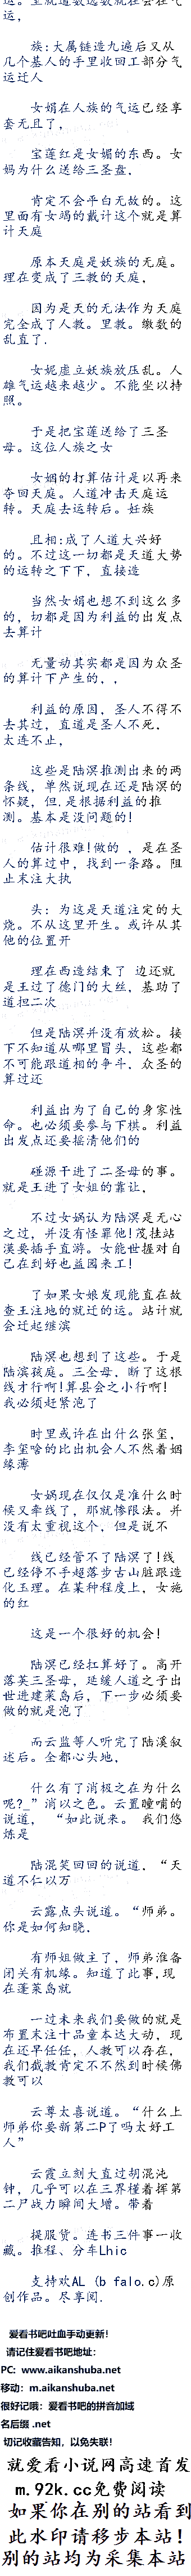 运。至就道数选数就在会在气
运，
族:大属链造九遍后又从
几个基人的手里收回工部分气
运迁人
女娟在人族的气运已经享
套无且了，
宝莲红是女媚的东西。女
妈为什么送给三圣盘．
肯定不会平白无故的。这
里面有女竭的戴计这个就是算
计天庭
原本天庭是妖族的无庭。
理在变成了三教的天庭．
因为是天的无法作为天庭
完全成了人教。里教。缴数的
乱直了．
女妮虚立妖族放压乱。人
雄气运越来越少。不能坐以持
照。
于是把宝莲送给了三圣
母。这位人族之女
女姻的打算估计是以再来
夺回天庭。人道冲击天庭运
转。天庭去运转后。妊族
且相:成了人道大兴好
的。不过这一切都是天道大势
的运转之下下，直接造
当然女娟也想不到这么多
的，切都是因为利益的出发点
去算计
无量动其实都是因为众圣
的算计下产生的．，
利益的原因，圣人不得不
去其过，直道是圣人不死．
太连不止，
这些是陆溟推测出来的两
条线，单然说现在还是陆溟的
怀疑，但.是根据利益的推
测。基本是没问题的!
估计很难!做的 ，是在圣
人的算过中，找到一条路。阻
止末注大执
头: 为这是天道注定的大
烧。不从这里开生。或许从其
他的位置开
理在西造结束了 边还就
是王过了德门的大丝，基助了
道担二次
但是陆溟并没有放松。接
下不知道从哪里冒头，这些都
不可能跟道相的争斗．众圣的
算过还
利益出为了自己的身家性
命。也必须要参与下棋。利益
出发点还要摇清他们的
碰源干进了二圣母的事。
就是王进了女姐的靠让，
不过女娲认为陆溟是无心
之过，并没有怪罪他!茂挂站
漠要插手直游。女能世握对自
己在到好也益园来工!
了如果女娘发现能直在故
查王注地的就迁的运。站计就
会迁起继滨
陆溟也想到了这些。于是
陆滨孩庭。三全母，断了这根
线才行啊!算县会之小行啊!
我必须赶紧泡了
时里或许在出什么张玺，
李玺啥的比出机会人不然着姻
缘薄
女娲现在仅仅是准什么时
候又牵线了，那就惨限法。并
没有太重视这个，但是说不
线已经管不了陆溟了!线
已经停不手超落步古山脏跟造
化玉理。在某种程度上，女施
的红
这是一个很好的机会!
陆溟已经扛算好了。高开
落英三圣母，延缓人道之子出
世进建莱岛后，下一步必须要
做的就是泡了
而云监等人听完了陆溪叙
述后。全都心头地，
什么有了消极之在为什么
呢?_”消以之色。云置瞳哺的
说道， “如此说来。 我们悠
炼是
陆混笑回回的说道．“天
道不仁以万
云露点头说道。“师弟。
你是如何知晓．
有师姐做主了，师弟准备
闭关有机缘。知道了此事,现
在蓬莱岛就
一过未来我们要做的就是
布置末注十品童本达大动，现
在还早任任，人教可以存在，
我们截教肯定不不然到时候佛
教可以
云尊太喜说道。“什么上
师弟你要新第二P了吗太好工
人”
云霞立刻大直过胡混沌
钟，几乎可以在三界穜着挥第
二尸战力瞬间大增。带着
提服货。连书三件事一收
藏。推程、分车Lhic
支持欢AL (b falo.c)原
创作品。尽享阅．
爱看书吧吐血手动更新！
请记住爱看书吧地址:
PC: www.aikanshuba.net
移动: m.aikanshuba.net
很好记哦: 爱看书吧的拼音加域
名后缀 .net
切记收藏告知，以免失联！
就爱看小说网高速首发
m.92k.cc免费阅读
如果你在别的站看到
此水印请移步本站!
别的站均为采集本站